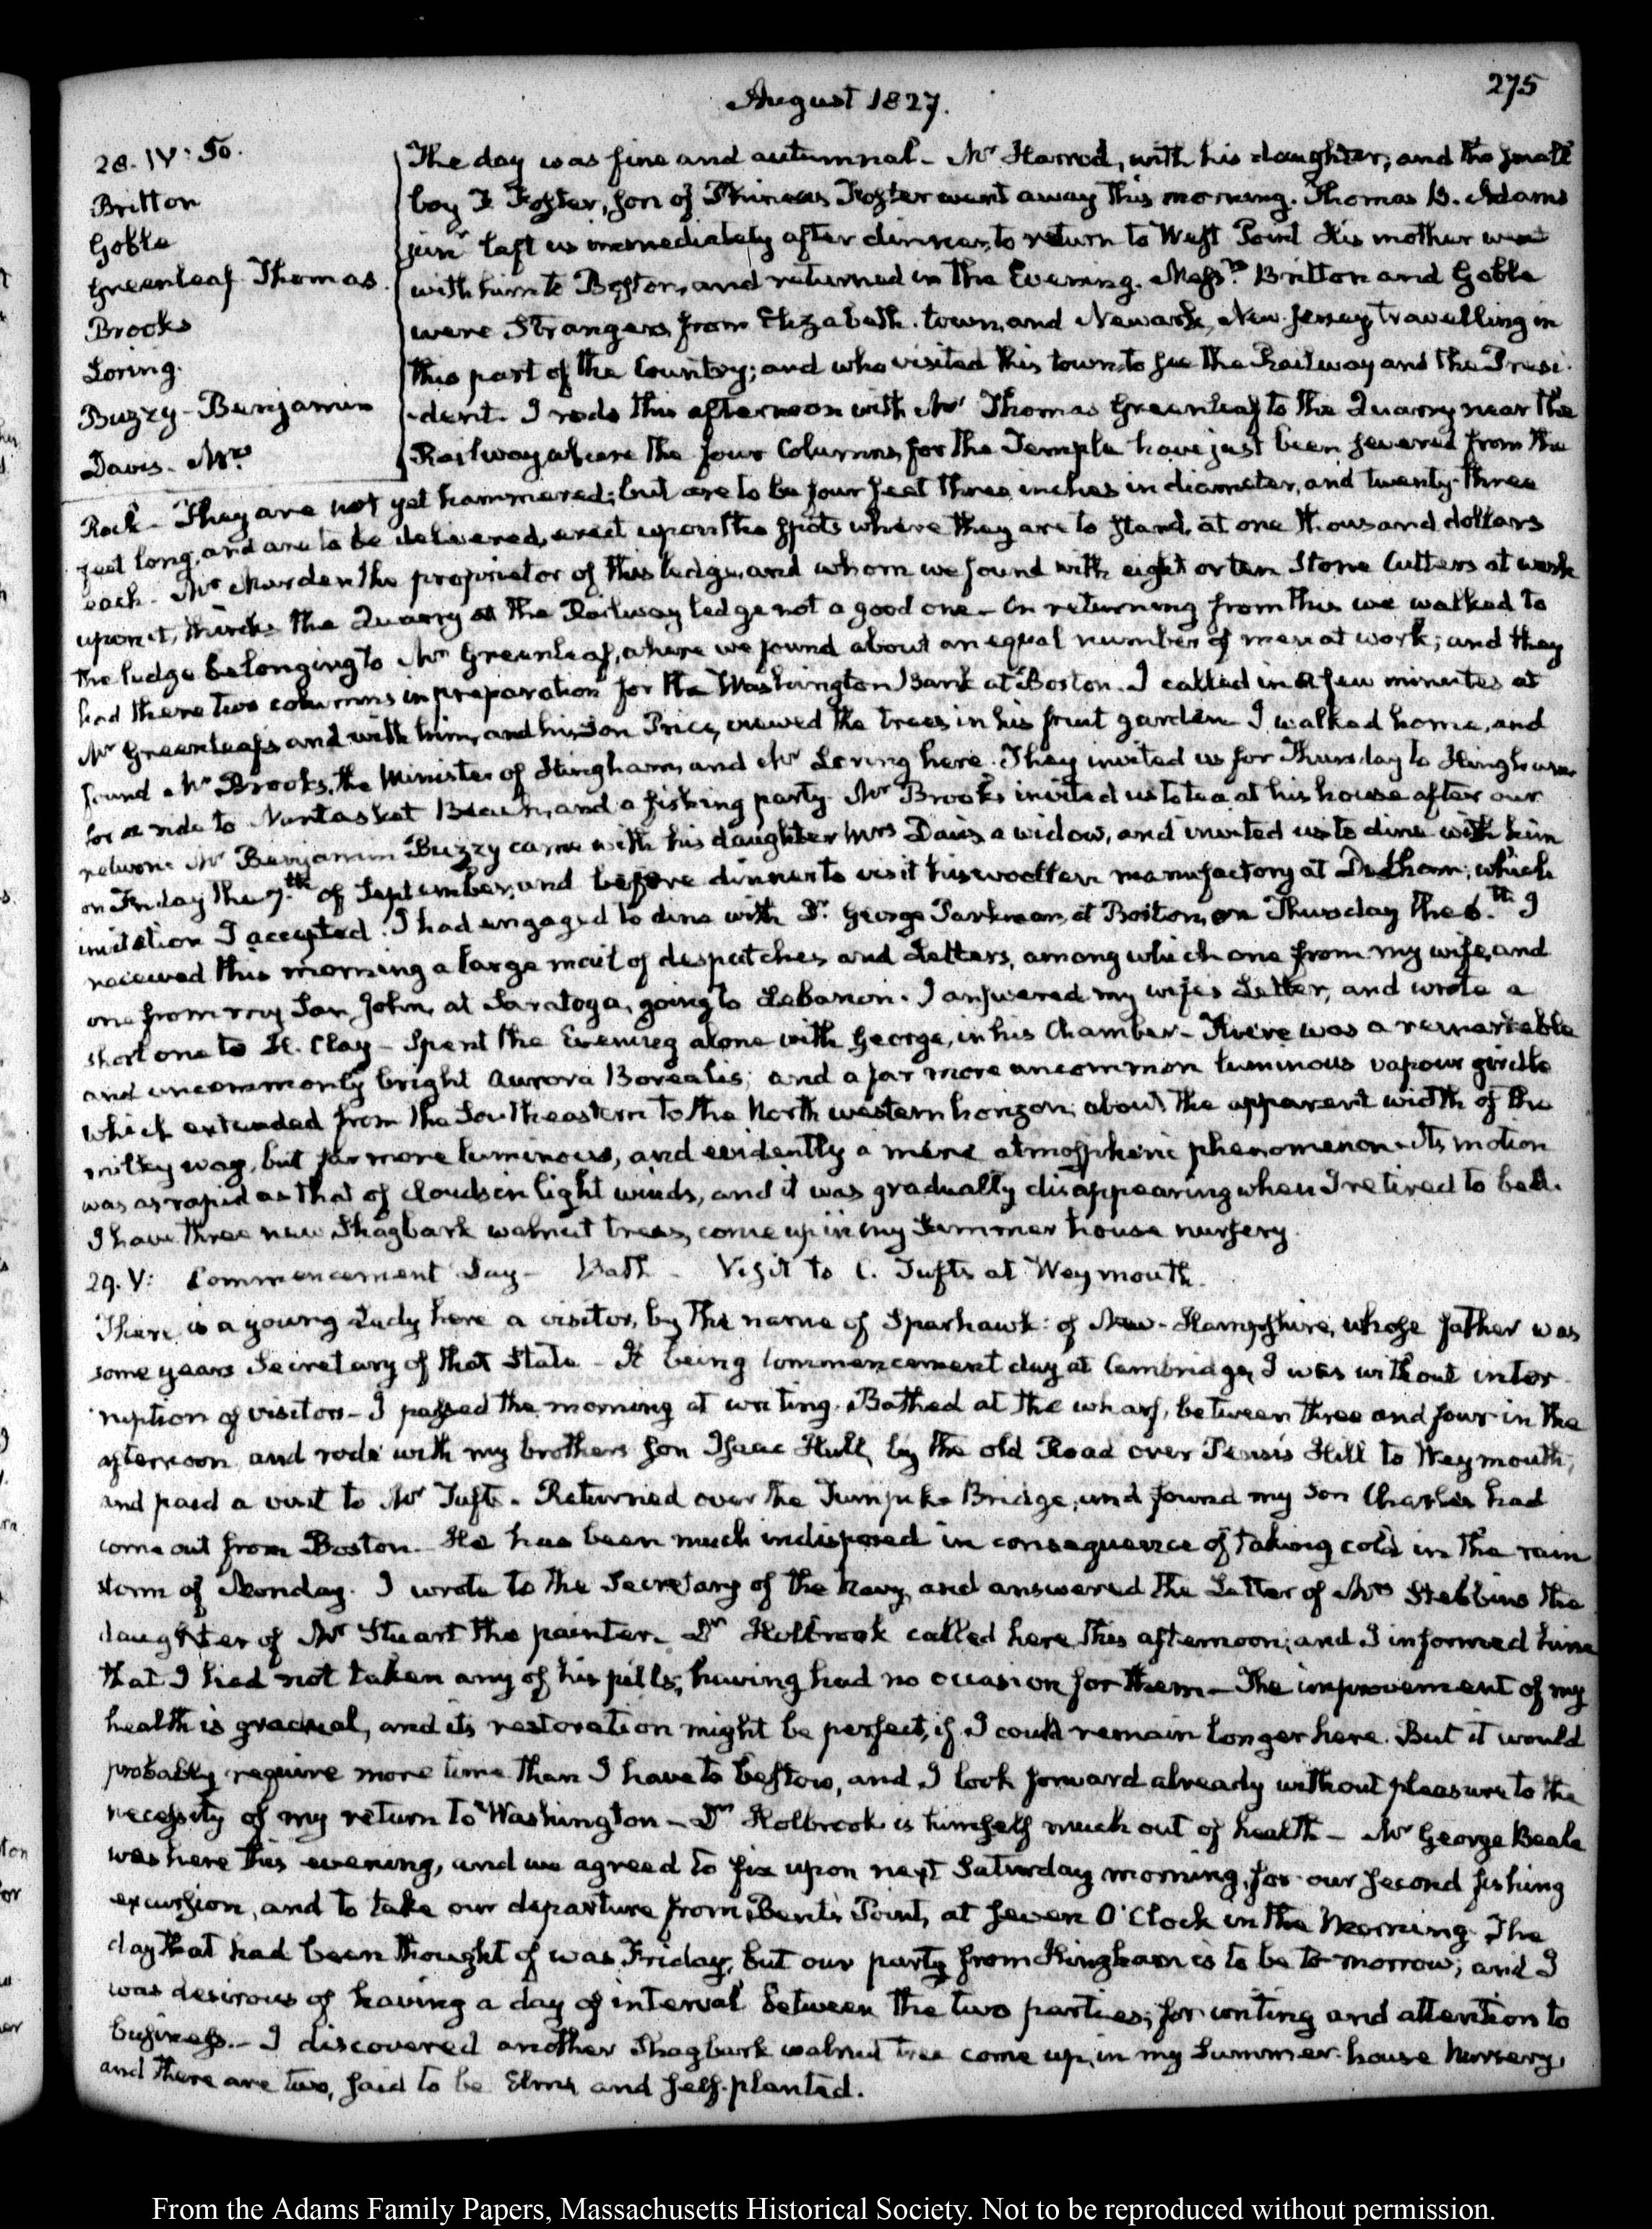 275
August 1827.
28. IV: 50.
Britton
Goble
Greenleaf Thomas.
Brooks
Loring.
Buzzy - Benjamin
Davis - Mrs
The day was fine and autumnal - Mr Harrod, with his daughter, and the small
boy F. Foster, son of Phineas Foster went away this morning. Thomas B. Adams
junr left us immediately after dinner, to return to West Point His mother went
with him to Boston, and returned in the Evening. Messrs Britton and Goble
were Strangers from Elizabeth-town, and Newark, New-Jersey, travelling in
this part of the Country; and who visited this town, to see the Railway and the Presi-
-dent. I rode this afternoon with Mr Thomas Greenleaf to the Quarry near the
Railway where the four Columns, for the Temple have just been severed from the
Rock - They are not yet hammered; but are to be four feet three inches in diameter, and twenty-three
feet long, and are to be delivered, erect upon the spots where they are to stand, at one thousand dollars
each - Mr Marden the proprietor of this ledge, and whom we found with eight or ten Stone Cutters at work
upon it, thinks the Quarry at the Railway ledge not a good one - On returning from this we walked to
the ledge belonging to Mr Greenleaf, where we found about an equal number of men at work; and they
had there two columns in preparation for the Washington Bank at Boston. I called in a few minutes at
Mr Greenleafs and with him, and his Son Price, viewed the trees in his fruit garden I walked home, and
found Mr Brooks, the Minister of Hingham, and Mr Loring here. They invited us for Thursday to Hingham
for a ride to Nantasket Beach, and a fishing party. Mr Brooks invited us to tea at his house after our
return. Mr Benjamin Buzzy came with his daughter Mrs Davis a widow, and invited us to dine with him
on Friday the 7.th of September, and before dinner to visit his woollen manufactory at Dedham; which
invitation I accepted. I had engaged to dine with Dr George Parkman, at Boston, on Thursday the 6.th I
received this morning a large mail of despatches and Letters, among which one from my wife, and
one from my Son John, at Saratoga, going to Lebanon. I answered my wife's Letter, and wrote a
short one to H. Clay - Spent the Evening alone with George, in his Chamber - There was a remarkable
and uncommonly bright Aurora Borealis; and a far more uncommon luminous vapour girdle
which extended from the Southeastern to the North western horizon; about the apparent width of the
milky way, but far more luminous, and evidently a mere atmospheric phenomenon - Its motion
was as rapid as that of clouds in light winds, and it was gradually disappearing when I retired to bed.
I have three new Shagbark walnut trees, come up in my Summer house nursery.
29. V: Commencement Day - Bath - Visit to C. Tufts at Weymouth.
There is a young Lady here a visitor, by the name of Sparhawk: of New-Hampshire, whose father was
some years Secretary of that State - It being Commencement day at Cambridge, I was without inter-
ruption of visitors - I passed the morning at writing. Bathed at the wharf, between three and four in the
afternoon and rode with my brothers Son Isaac Hull, by the old Road over Penn's Hill to Weymouth,
and paid a visit to Mr Tufts. Returned over the Turnpike Bridge, and found my Son Charles had
come out from Boston. He has been much indisposed in consequence of taking cold in the rain
storm of Monday. I wrote to the Secretary of the Navy, and answered the Letter of Mrs Stebbins the
daughter of Mr Stuart the painter. Dr Holbrook called here this afternoon; and I informed him
that I had not taken any of his pills; having had no occasion for them - The improvement of my
health is gradual, and its restoration might be perfect, if I could remain longer here. But it would
probably require more time than I have to bestow, and I look forward already without pleasure to the
necessity of my return to Washington - Dr Holbrook is himself much out of health - Mr George Beale
was here this evening, and we agreed to fix upon next Saturday morning, for our second fishing
excursion, and to take our departure from Bent's Point, at seven O'Clock in the Morning. The
day that had been thought of was Friday, but our party from Hingham is to be to-morrow; and I
was desirous of having a day of interval between the two parties; for writing and attention to
business. - I discovered another Shagbark walnut tree come up, in my Summer-house Nursery,
and there are two, said to be Elms, and self-planted.
From the Adams Family Papers, Massachusetts Historical Society. Not to be reproduced without permission.